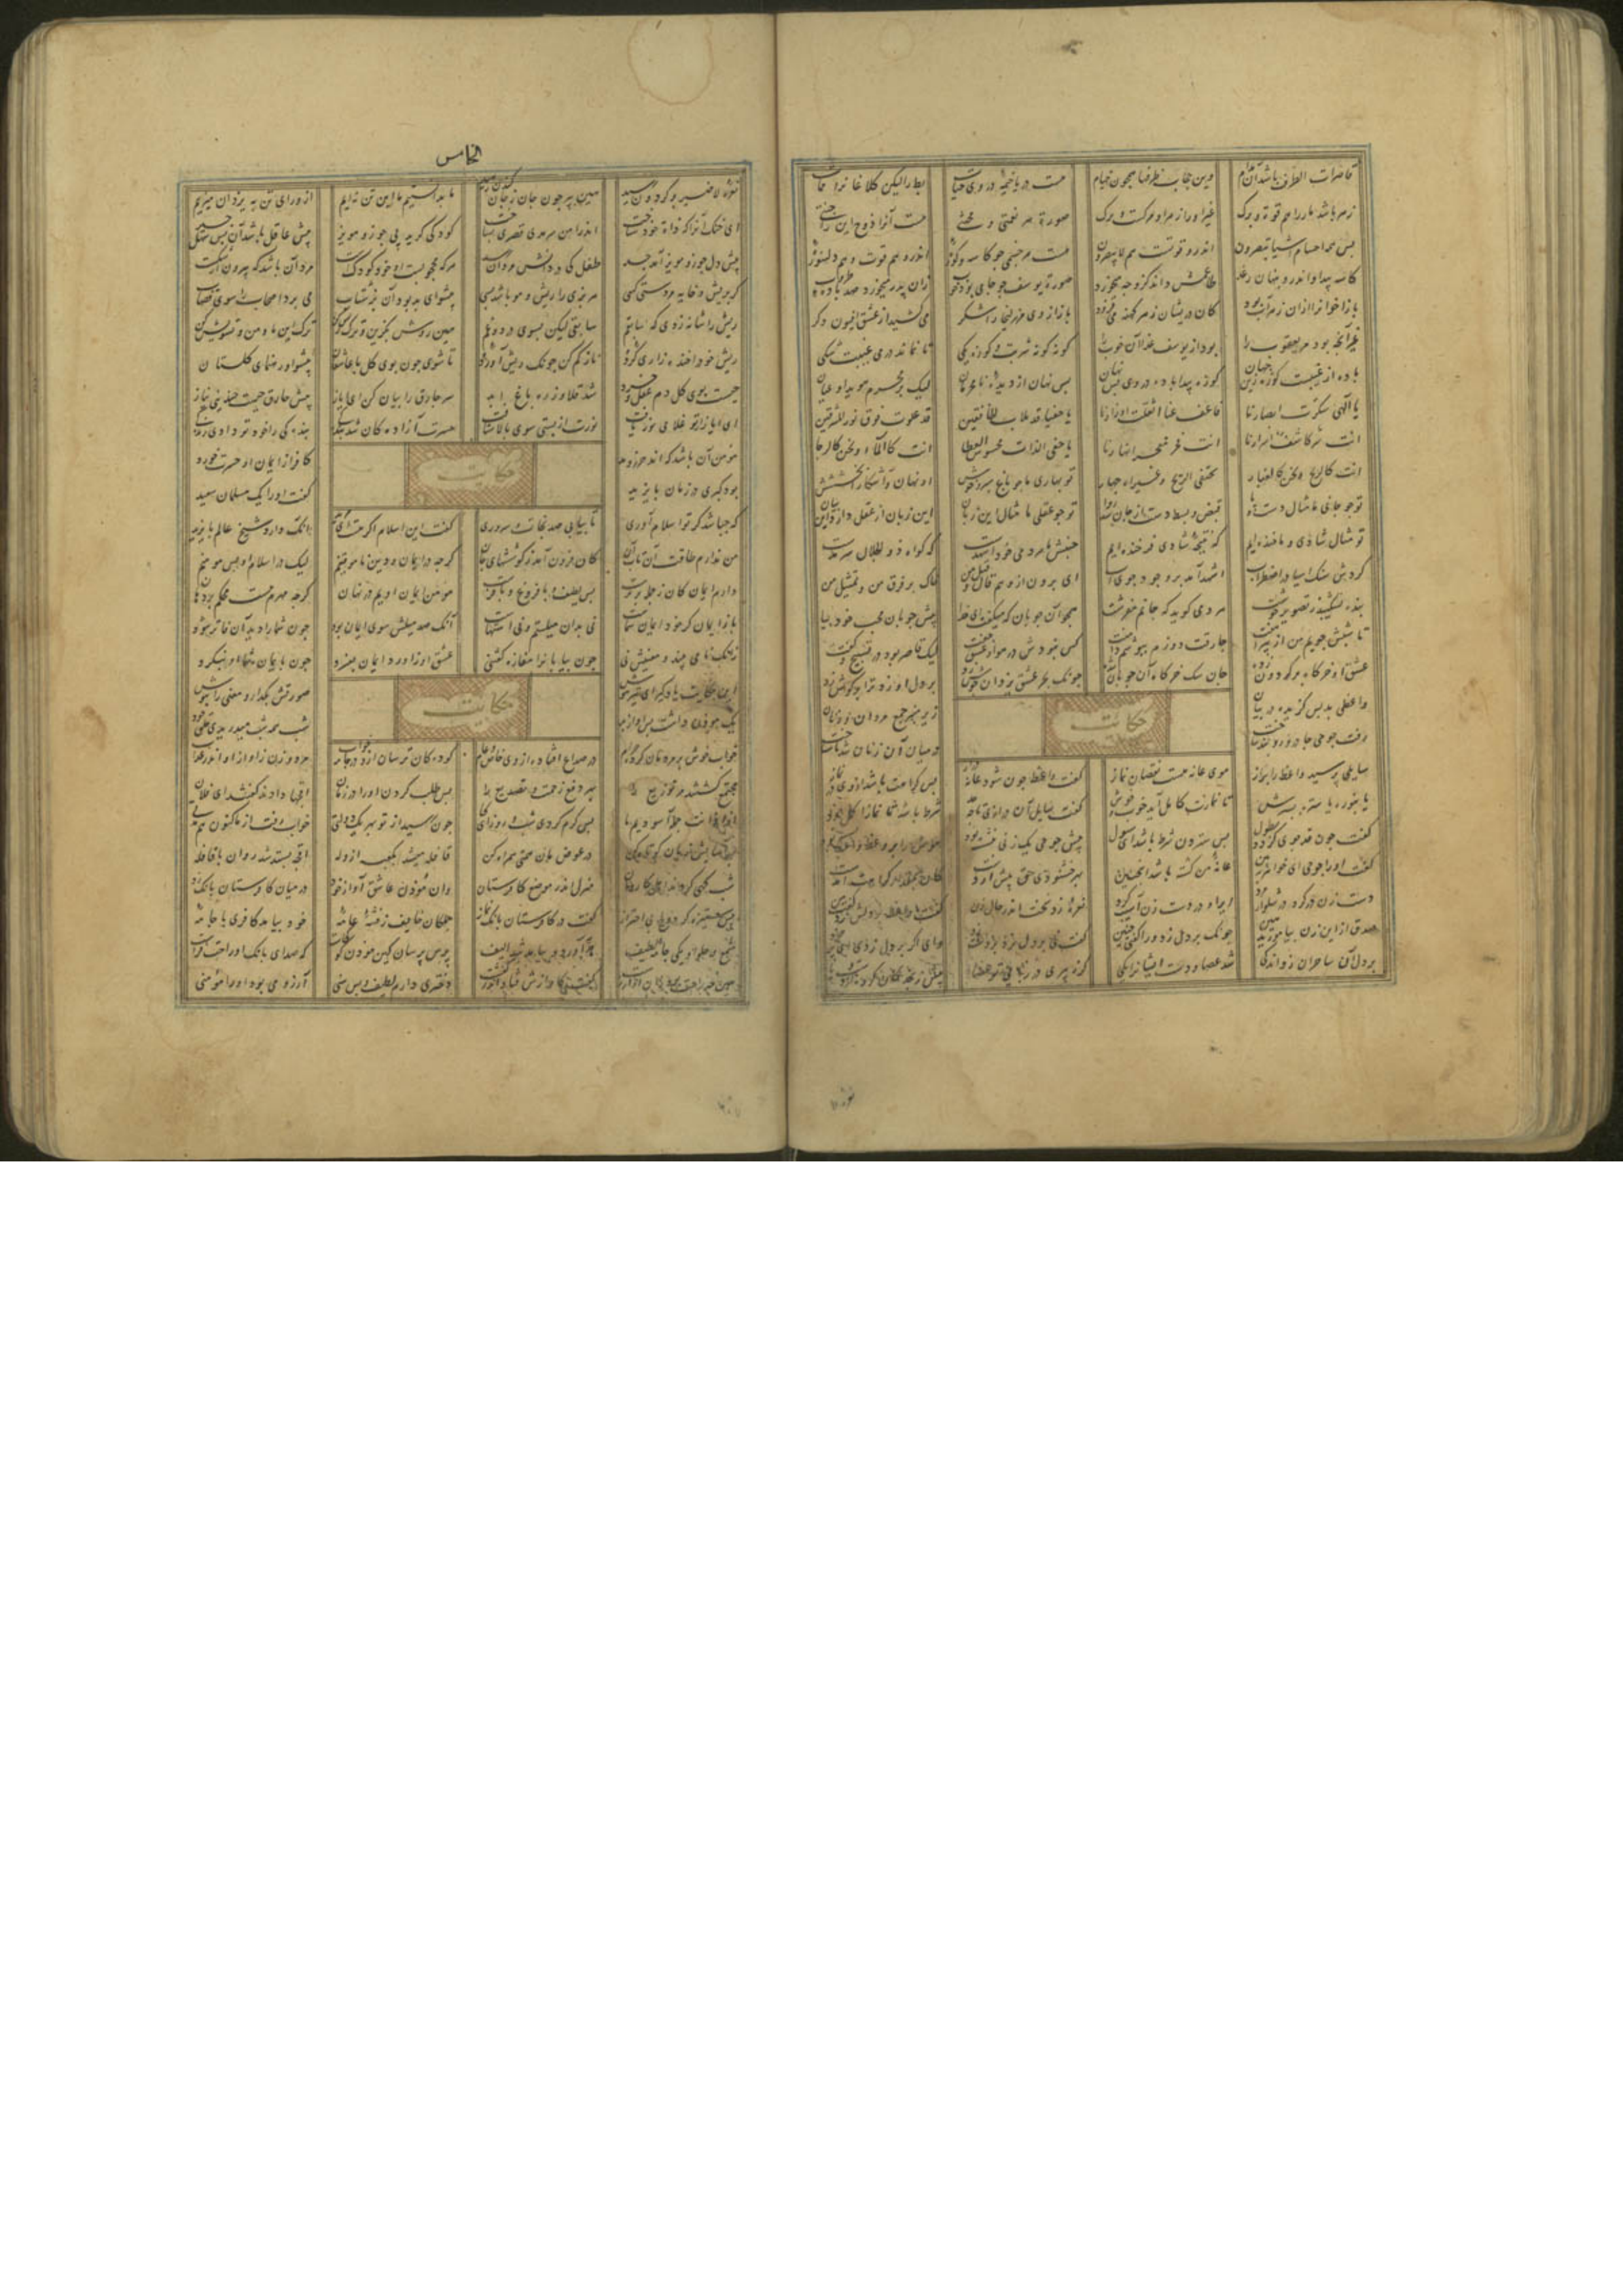 قاصرات الطرف باشد آن مدام وین حجاب ظرفها همچون خیام هست دریا خیمه در وی حیات بط را لیکن کلاغانرا ممات
زهر باشد مار را هم قوت و برک غیر او را زهر او مرکست و مرک صورة هر نعمتی و محنتی هست آنرا دوزخ اینرا جنتی
پس همه اجسام اشیا تبصرون اندرو قوتست هم لا تبصرون هست هر جسمی جو کاسه و کوزه اندرو هم قوت و هم دلسوزه
کاسه پیدا و اندرو پنهان رغد طاعمش داند کزو جه میخورد صورة یوسف جو جامی بود خوب زان پدر میخورد صد باده طروب
باز اخوانرا ازان زهرآب بود کان دریشان زهر کینه می فزود باز از وی مر زلیخا را شکر می کشید از عشق افیون دکر
غیر آنچه بود مر یعقوب را بود از یوسف غذا آن خوب را کونه کونه شربت و کوزه یکی تا نماند در می غیبت شکی
باده از غیبست کوزه زین جهان کوزه پیدا باده در وی بس نهان بس نهان از دیده نامحرمان لیک بر محرم هویدا و عیان
یا الهی سکرت ابصارنا فاعف عنا اثقلت اوزارنا یا خفیا قد ملات الخافقین قد علوت فوق نور المشرقین
انت سر کاشف اسرارنا انت فجر مفجر انهارنا یا خفی الذات محسوس العطا انت کالماء و نحن کالرحا
انت کالریح و نحن کالغبار تختفی الریح و غبراه جهار تو بهاری ما جو باغ سبز خوش او نهان و آشکارا بخششش
تو جو جانی ما مثال دست و پا قبض و بسط دست از جان شد روا تو جو عقلی ما مثال این زبان این زبان از عقل دارد این بیان
تو مثال شادی و ما خنده ایم که نتیجه شادی فرخنده ایم جنبش ما هر دمی خود اشهدست که کواه ذو الجلال سرمدست
کردش سنک آسیا در اضطراب اشهد آمد بر وجود جوی آب ای برون از وهم و قال و قیل من خاک بر فرق من و تمثیل من
بنده نشکیبد ز تصویر خوشت هر دمی کوید که جانم مفرشت همجو آن جوبان که میکفت ای خدا پیش جوبان محب خود بیا
تا شبش جویم من از پیراهنت جارقت دوزم ببوسم دامنت کس نبودش در هوا و عشق جفت لیک قاصر بود در تسبیح و کفت
عشق او خرکاه بر کردون زده جان سک خرکاه آن جوبان شده جونک بحر عشق یزدان جوش زد بر دل او زد ترا بر کوش زد
واعظی بد بس کزیده در بیان زیر منبر جمع مردان و زنان
حکایت
رفت جوحی جادر و روبند ساخت در میان آن زنان شد ناشناخت
سایلی پرسید واعظ را براز موی عانه هست نقصان نماز کفت واعظ جون شود عانه دراز پس کراهت باشد از وی در نماز
یا بنوره یا ستره بسترش تا نمازت کامل آید خوب و خوش کفت سایل آن درازی تا جه حد شرط باشد تا نماز
کفت جون قدر جوی کردد بطول پس ستردن شرط باشد ای سول پیش جوحی یک زنی بنشسته بود هوش را بر وعظ واعظ بسته بود
کفت او را جوحی ای خواهر ببین عانه من کشته باشد اینچنین بهر خشنودی حق پیش آر دست کان بمقدار کراهت آمدست
دست زن در کرد در شلوار مرد ایر او بر دست زن آسیب کرد نعره زد سخت اندر حال زن کفت واعظ بر دلش زد کفت من
صدق از این زن بیاموزید هین جونک بر دل زد ورا کفتی چنین کفت نی بر دل نزد بر دست زد وای اکر بر دل زدی
بر دل آن ساحران زد اندکی شد عصا و دست ایشانرا یکی کر ز پیری در ربایی تو عصا بیش رنجد کان کروه از دست و پا
الخامس
نعره لاضیر بر کردون رسید هین ببر جون جان ز جان کندن رهید ما بدانستیم ما این تن نه ایم از ورای تن به یزدان میزییم
ای خنک آنرا که ذات خود شناخت اندر امن سرمدی قصری بساخت کودکی کرید پی جوز و مویز پیش عاقل باشد آن بس سهل چیز
پیش دل جوز و مویز آمد جسد طفل کی در دانش مردان رسد هر که محجوبست او خود کودکست مرد آن باشد که بیرون از شکست
کر بریش و خایه مردستی کسی هر بزی را ریش و مو باشد بسی پیشوای بد بود آن بز شتاب می برد اصحاب را سوی قصاب
ریش را شانه زدی که سابقم سابقی لیکن بسوی درد و غم هین روش بکزین و ترک ریش کن ترک این ما و من و تشویش کن
ریش خود را خنده زاری کرده ناز کم کن جونک ریش آورده تا شوی جون بوی کل با عاشقان پیشوا و رهنمای کلستان
جیست بوی کل دم عقل و خرد شد قلاوز ره باغ ابد سر جارق را بیان کن ای ایاز پیش جارق جیست جندینی نیاز
ای ایاز از تو غلامی نور یافت نورت از پستی سوی بالا شتافت حسرت آزادکان شد بندکی بندکی را خود تو دادی زندکی
مومن آن باشد که اندر جزر و مد کافر از ایمان او حسرت خورد
حکایت
بود کبری در زمان بایزید کفت او را یک مسلمان سعید
که جه باشد کر تو اسلام آوری تا بیابی صد نجات و سروری کفت این اسلام اکر هست ای مرید آنک دارد شیخ عالم بایزید
من ندارم طاقت آن تاب آن کان فزون آمد ز کوششهای جان کرجه در ایمان و دین ناموقنم لیک در اسلام او بس مومنم
دارم ایمان کان ز جمله برترست بس لطیف و با فروغ و با فرست مومن ایمان اویم در نهان کرجه مهرم هست محکم بر دهان
باز ایمان کر خود ایمان شماست نی بدان میلستم و نی اشتهاست آنک صد میلش سوی ایمان بود جون شما را دید آن فاتر شود
زانک نامی بیند و معنیش نی جون بیابانرا مفازه کفتنی عشق او ز اورد ایمان بفسرد جون بایمان شما او بنکرد
این حکایت یاد کیر ای تیزهوش صورتش بکذار و معنی را نیوش
حکایت
یک موذن داشت بس آواز بد شب همه شب میدریدی حلق خود
خواب خوش بر مردمان کرده حرام در صداع افتاده از وی خاص و عام کودکان ترسان ازو در جامه خواب مرد و زن ز آواز او اندر عذاب
مجتمع کشتند مر توزیع را بهر دفع زحمت و تصدیع را پس طلب کردند او را در زمان اقچها دادند کفتند ای فلان
از اذانت جمله آسودیم ما بس کرم کردی شب و روز ای کیا جون رسید از تو بهر یک دولتی خواب رفت از ما کنون هم مدتی
بهر آسایش زبان کوتاه کن در عوض مان همتی همراه کن قافله میشد بکعبه از وله اقچه بستد شد روان با قافله
شبکهی کردند اهل کاروان منزل اندر موضع کافرستان وان موذن عاشق آواز خود در میان کافرستان بانک زد
پس ستیزه کرد و بی احتراز کفت در کافرستان بانک نماز جملکان خایف ز فتنه عامه خود بیامد کافری با جامه
شمع و حلوا و یکی جامه لطیف هدیه آورد و بیامد جون الیف پرس پرسان کین موذن کو کجاست که صدای بانک او راحت فزاست
هین چه راحت بود زان آواز زشت کفت کاوازش فتاد اندر کنشت دختری دارم لطیف و بس سنی آرزو می بود او را مومنی